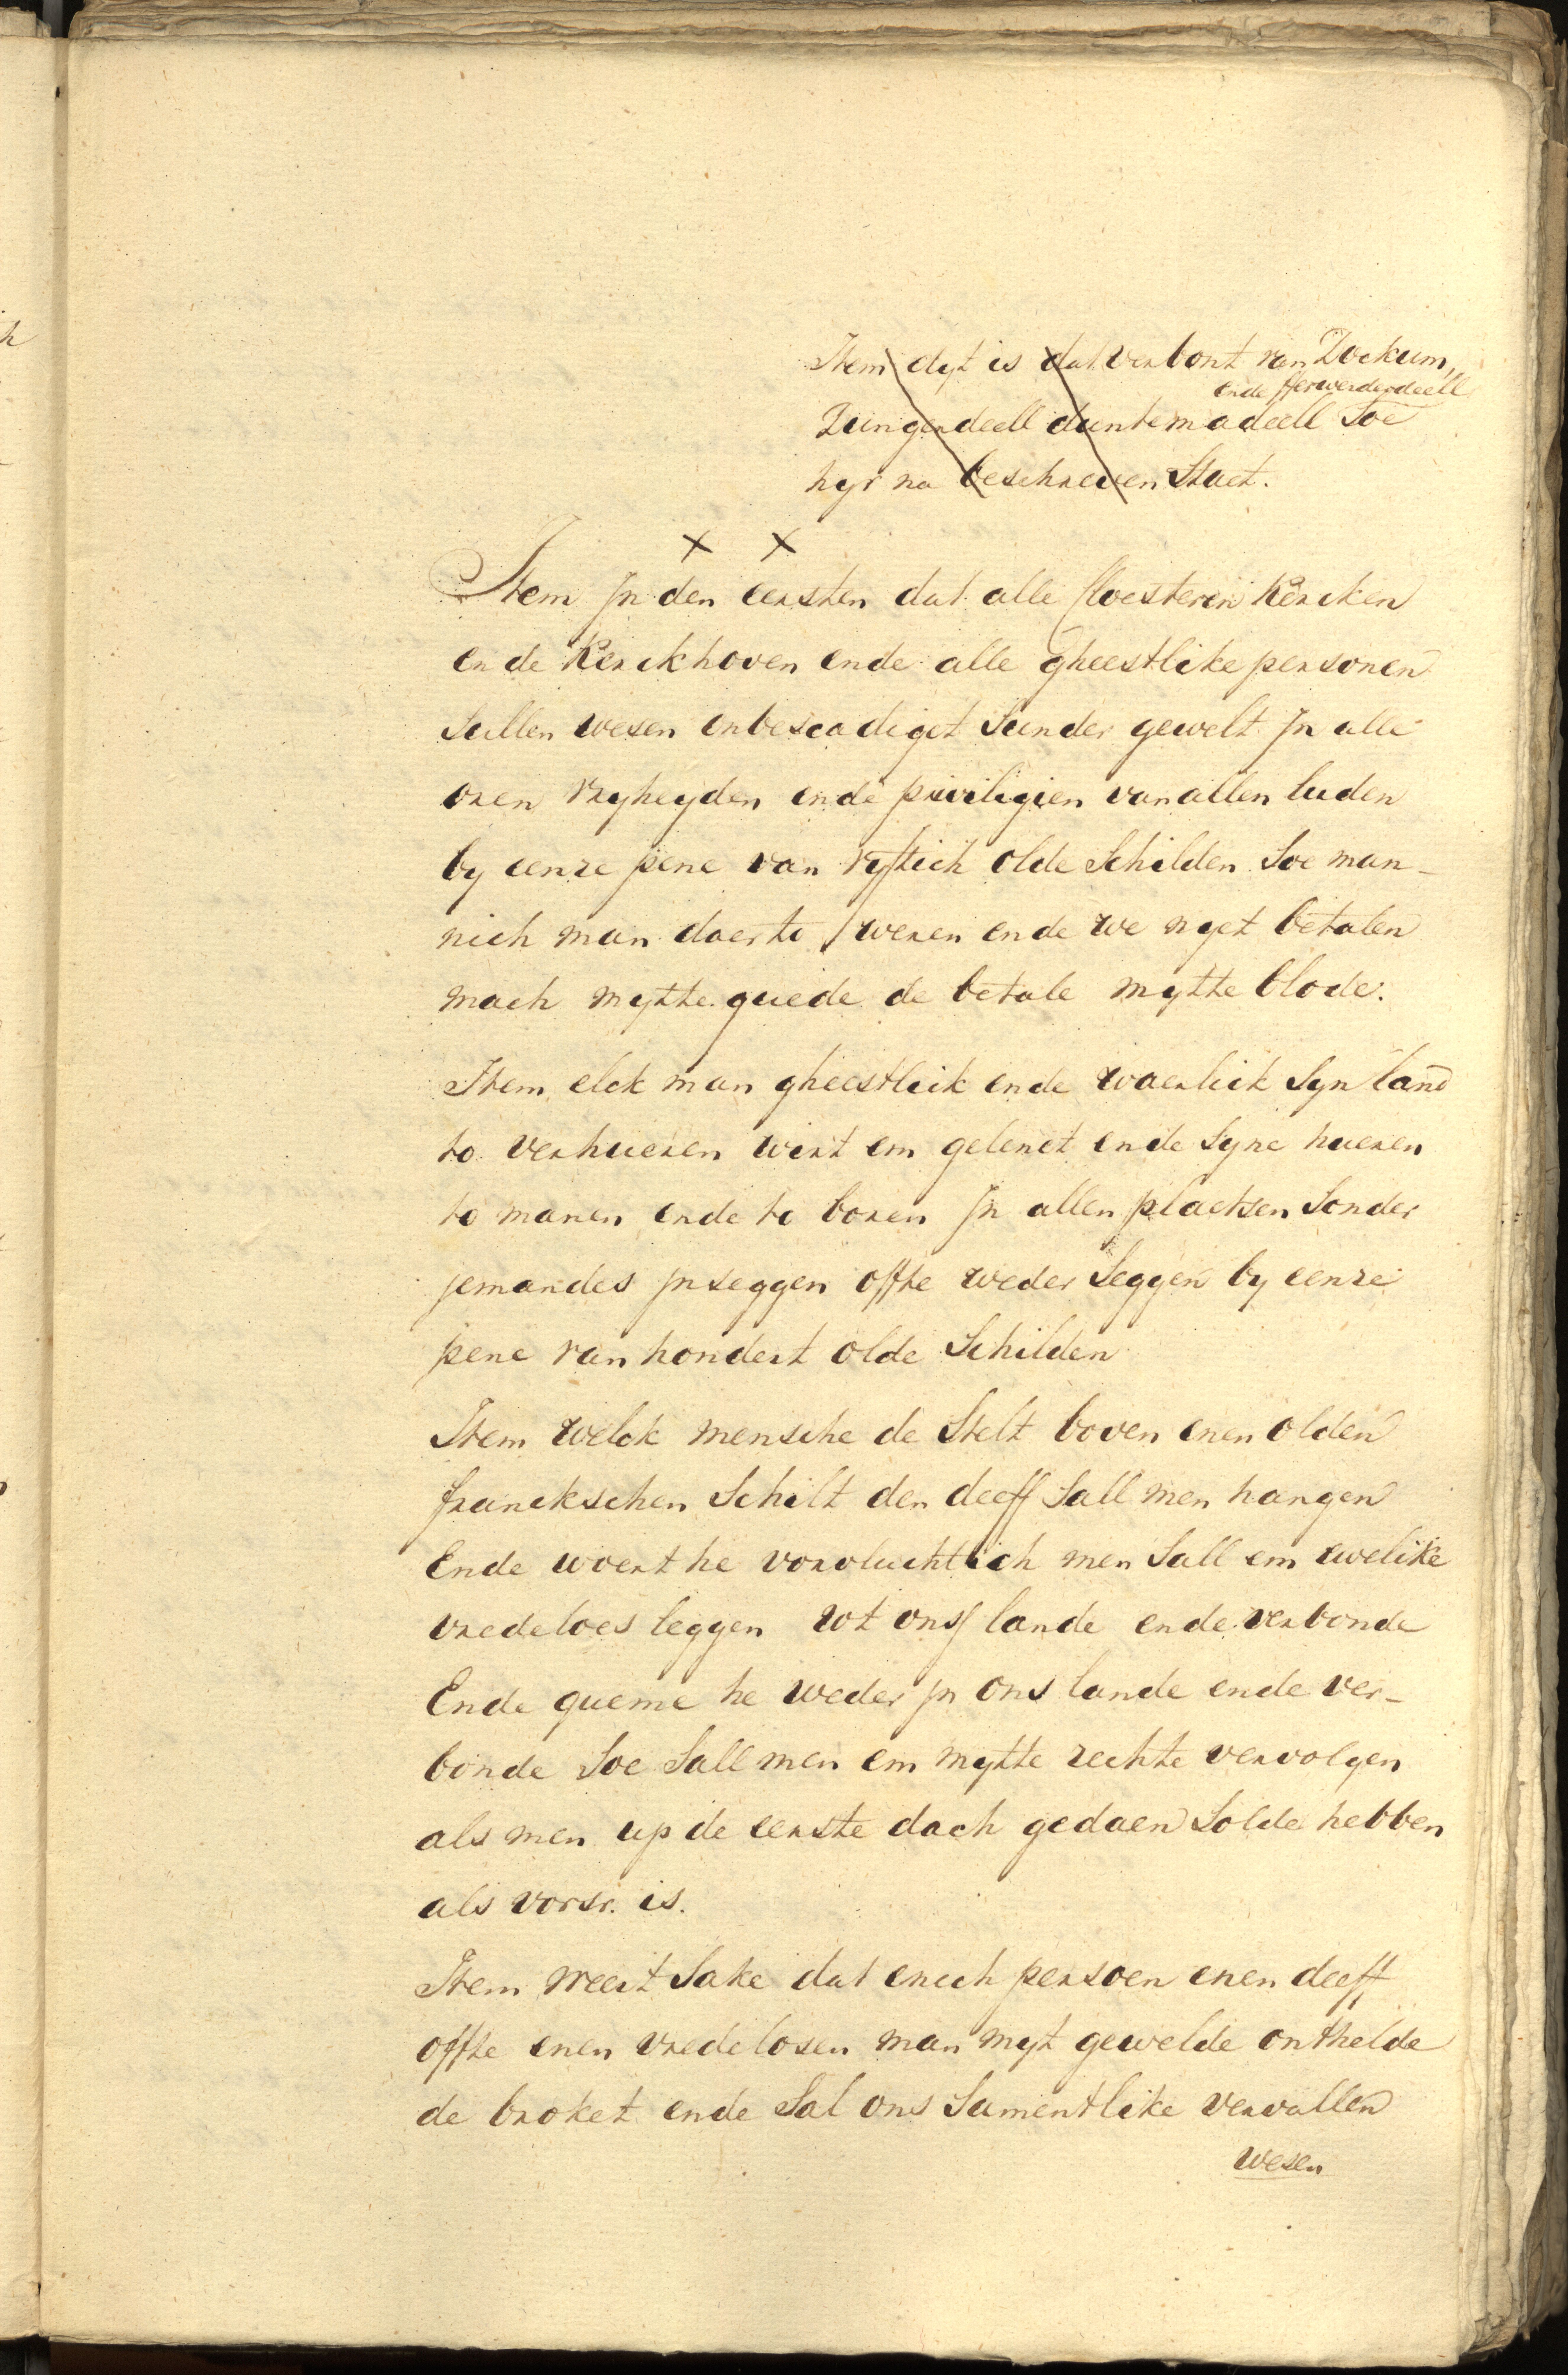 Item dyt is dat verbont van Dockum,
ende fferwerderdeell
Dungerdeell duntemadeell Soe
hyr na beschreven Staet.
Item Jn den eersten dat alle Cloesteren Kercken
ende Kerckhoven ende alle gheestlike personen
Sullen wesen onbescadiget Sunder gewelt Jn alle
oren vryheyden ende priviligien van allen luden
by eenre pene van vyftich olde Schilden Soe man-
nich man daer to weren ende we nyet betalen
mach mytte guede de betale mytte blode.
Item elck man gheestleik ende waerlick Syn land
to verhueren wirt em gelenet ende Syne hueren
to manen ende to boren Jn allen plaetsen Sonder
jemandes jnseggen offte weder Seggen by eenre
pene van hondert olde Schilden
Item welck mensche de Stelt boven enen olden
franckschen Schilt den deeff Sall men hangen
Ende woert he vorvluchtich men Sall em ewelike
vredeloes leggen wt ons lande ende verbonde
Ende queme he weder jn ons lande ende ver-
bonde Soe Sall men em mytte rechte vervolgen
als men up de eerste dach gedaen Solde hebben
als vorsr. is.
Item weert Sake dat enich persoen enen deeff
offte enen vredelosen man myt gewelde onthelde
de broket ende Sal ons Samentlike vervallen
wesen